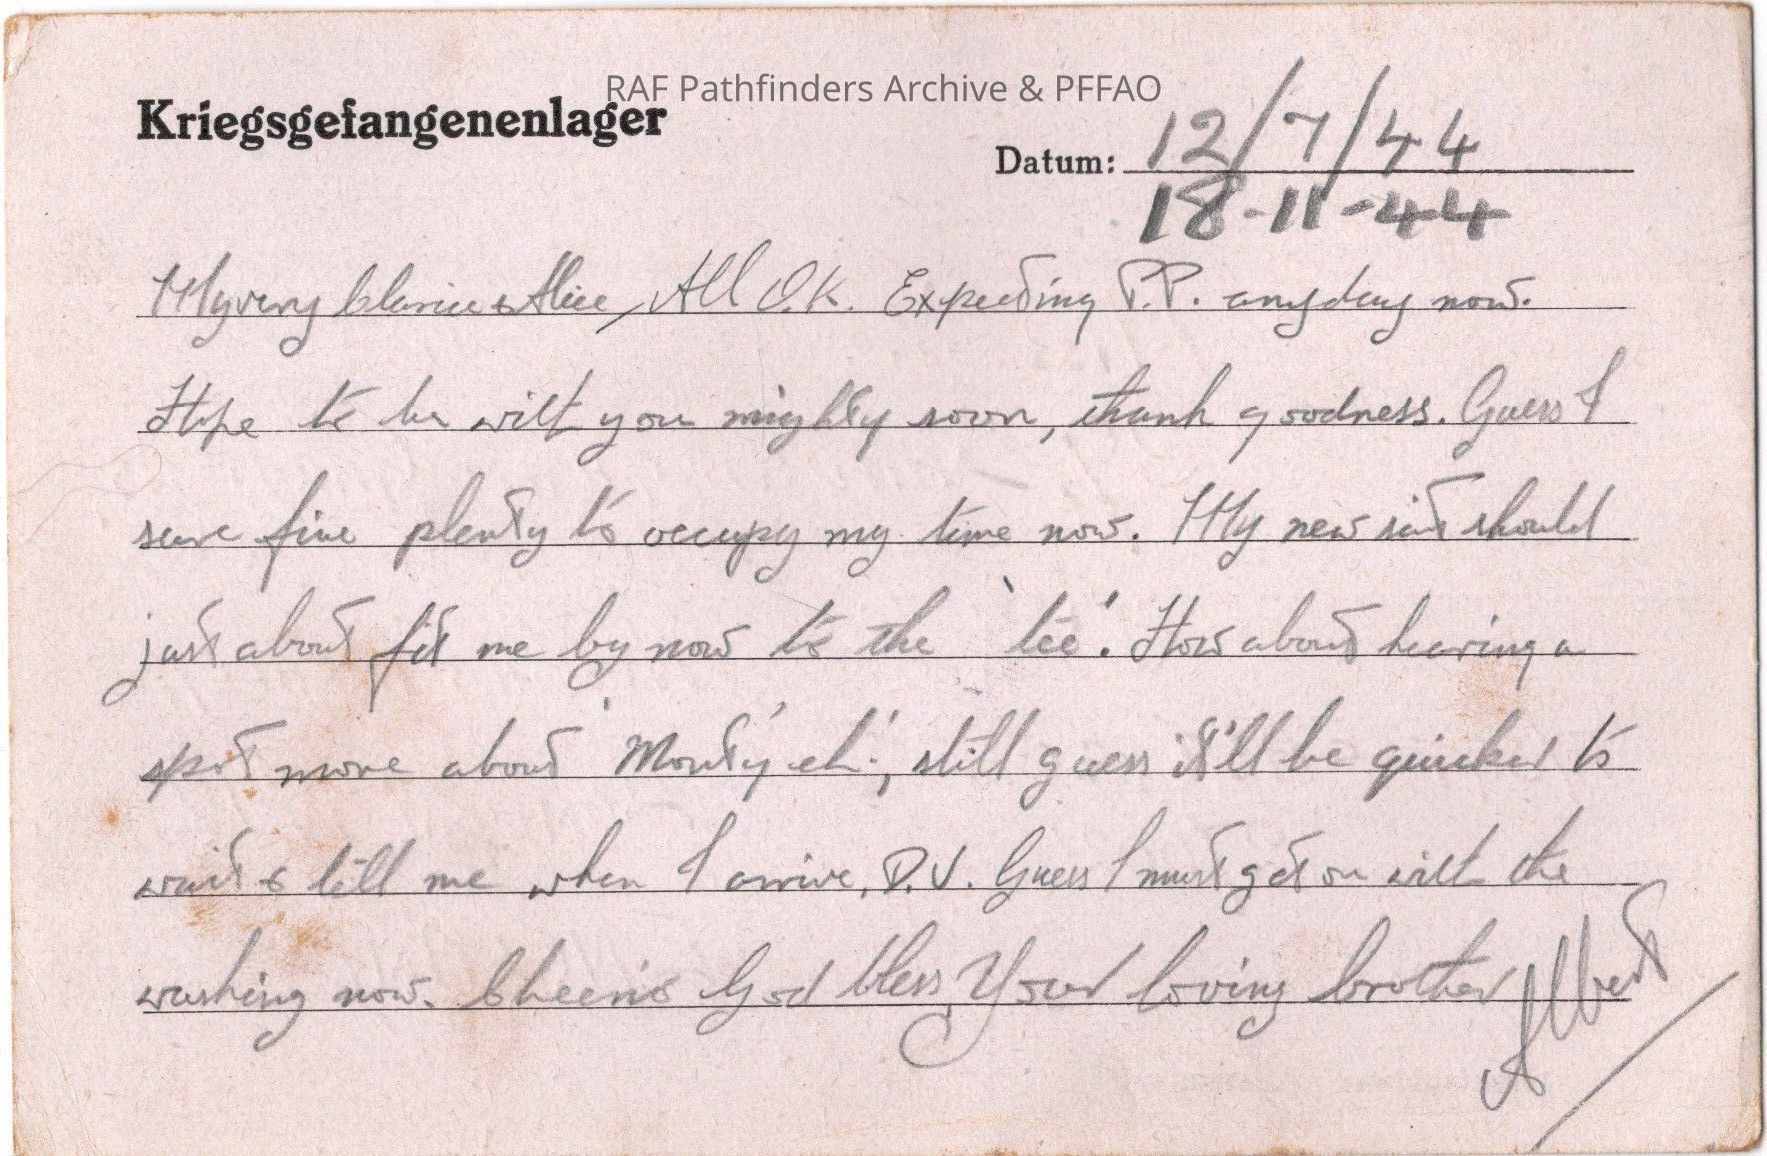 RAF Pathfinders Archive & PFFAO
Kriegsgefangenenlager
Datum: 12/7/44
18-11-44
My very Clarice & Alice, All O.K. Expecting P.P. anyday now.
Hope to be with you mighty soon, thank goodness. Guess I
sure fine plenty to occupy my time now. My new suit should
just about fit me by now to the 'tee'. How about hearing a
spot more about 'Monty' eh!, still guess it'll be quicker to
wait & tell me when I arrive, D.V. Guess I must get on with the
washing now. Cheerio God bless, Your loving brother Albert